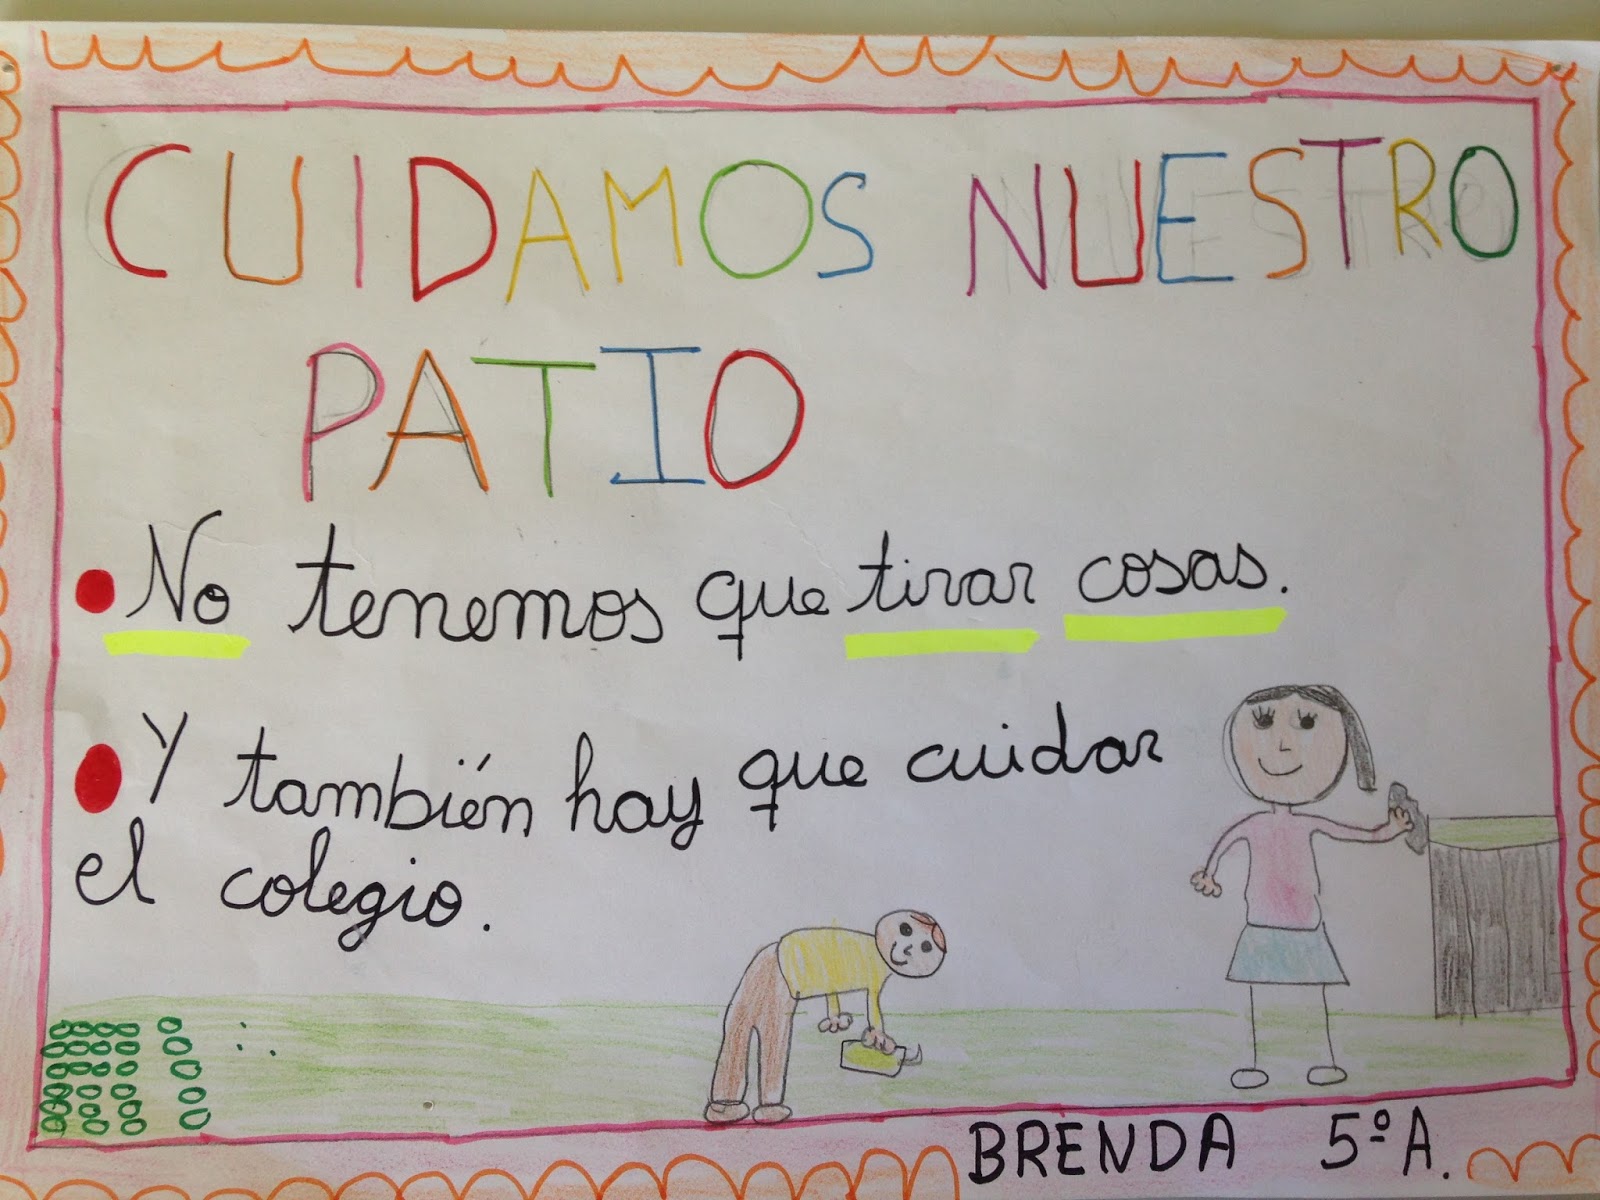 CUIDAMOS NUESTRO
PATIO
No tenemos que tirar cosas.
Y también hay que cuidar
el colegio.
BRENDA 5º A.